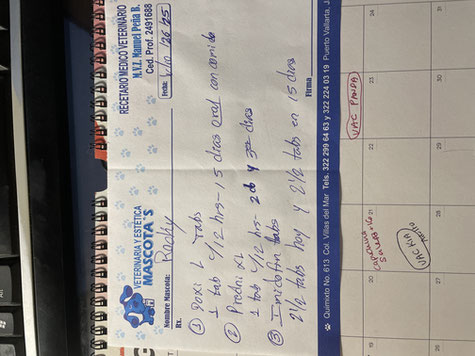 VETERINARIA Y ESTÉTICA
MASCOTA'S
RECETARIO MEDICO VETERINARIO
M.V.Z. Manuel Peña B.
Ced. Prof. 2491688
Nombre Mascota: Rocky
Fecha:
Rx.
① Doxi L Tabs
1 tab c/12 hrs - 15 dias oral con comida
② Predni XL
1 tab c/12 hrs - 2do y 3er dias
③ tabs
2 1/2 tabs hoy y 2 1/2 tabs en 15 dias
Firma
Quimixto No. 613 Col. Villas del Mar Tels. 322 299 64 63 y 322 224 03 19 Puerto Vallarta, J
19
20
21
22
23
24
VAC PANDA
26
27
28